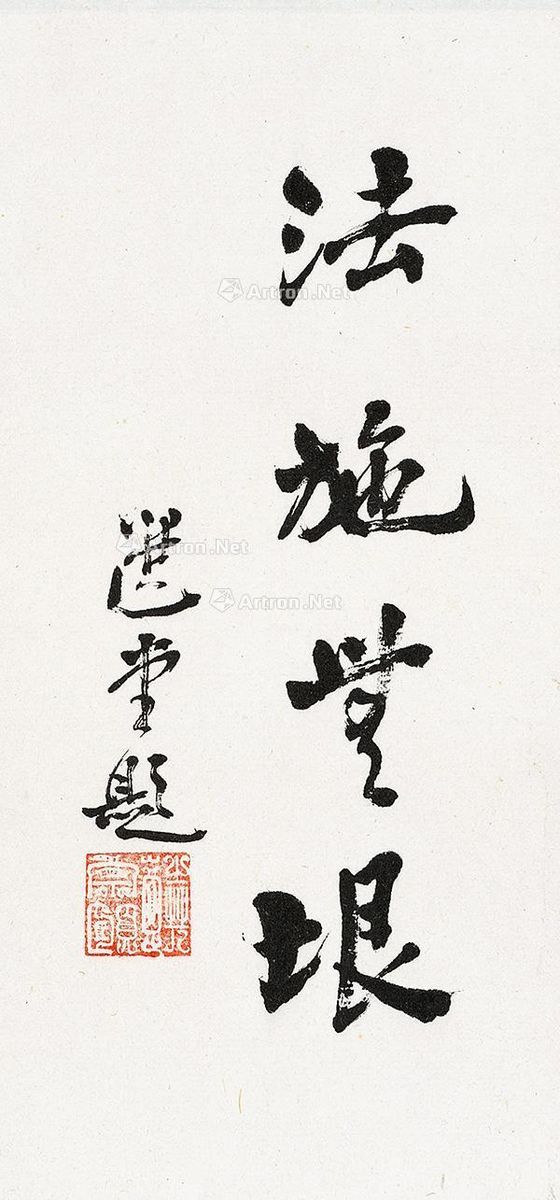 法施無垠
選堂題
Artron.Net
Artron.Net
Artron.Net